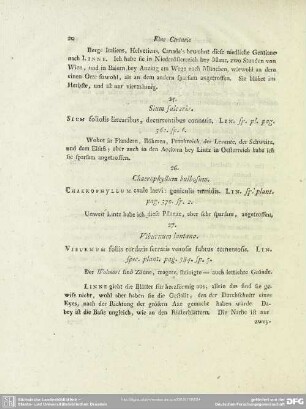 20 Eine Centurie
Berge Italiens, Helvetiens, Canada's bewohnt diese niedliche Gentiane
nach LINNE. Ich habe sie in Niederösterreich bey Manz, zwo Stunden von
Wien, und in Baiern bey Anzing am Wege nach München, wiewohl an dem
einen Orte sowohl, als an dem andern sparsam angetroffen. Sie blühet im
Herbste, und ist nur vierzähnig.
25.
Sium falcaria.
SIUM foliolis linearibus, decurrentibus connatis. LIN. sp. pl. pag.
362. sp. 6.
Wohnt in Flandern, Böhmen, Frankreich, der Ukraine, der Schweitz,
und dem Elsaß; aber auch in den Aeckern bey Lintz in Oesterreich habe ich
sie sparsam angetroffen.
26.
Chaerophyllum bulbosum.
CHAEROPHYLLUM caule laevi: geniculis tumidis. LIN. sp. plant.
pag. 370. sp. 2.
Unweit Lintz habe ich diese Pflanze, aber sehr sparsam, angetroffen.
27.
Viburnum lantana.
VIBURNUM foliis cordatis serratis venosis subtus tomentosis. LIN.
spec. plant. pag. 384. sp. 5.
Der Wohnort sind Zäune, magere, steinigte — auch lettichte Gründe.
LINNE giebt die Blätter für herzförmig aus, allein das sind sie ge-
wiß nicht, wohl aber haben sie die Gestalt, den der Durchschnitt eines
Eyes, nach der Richtung der größern Axe gemacht haben würde. Da-
bey ist die Base ungleich, wie an den Rüsterblättern. Die Narbe ist nur
zwey-